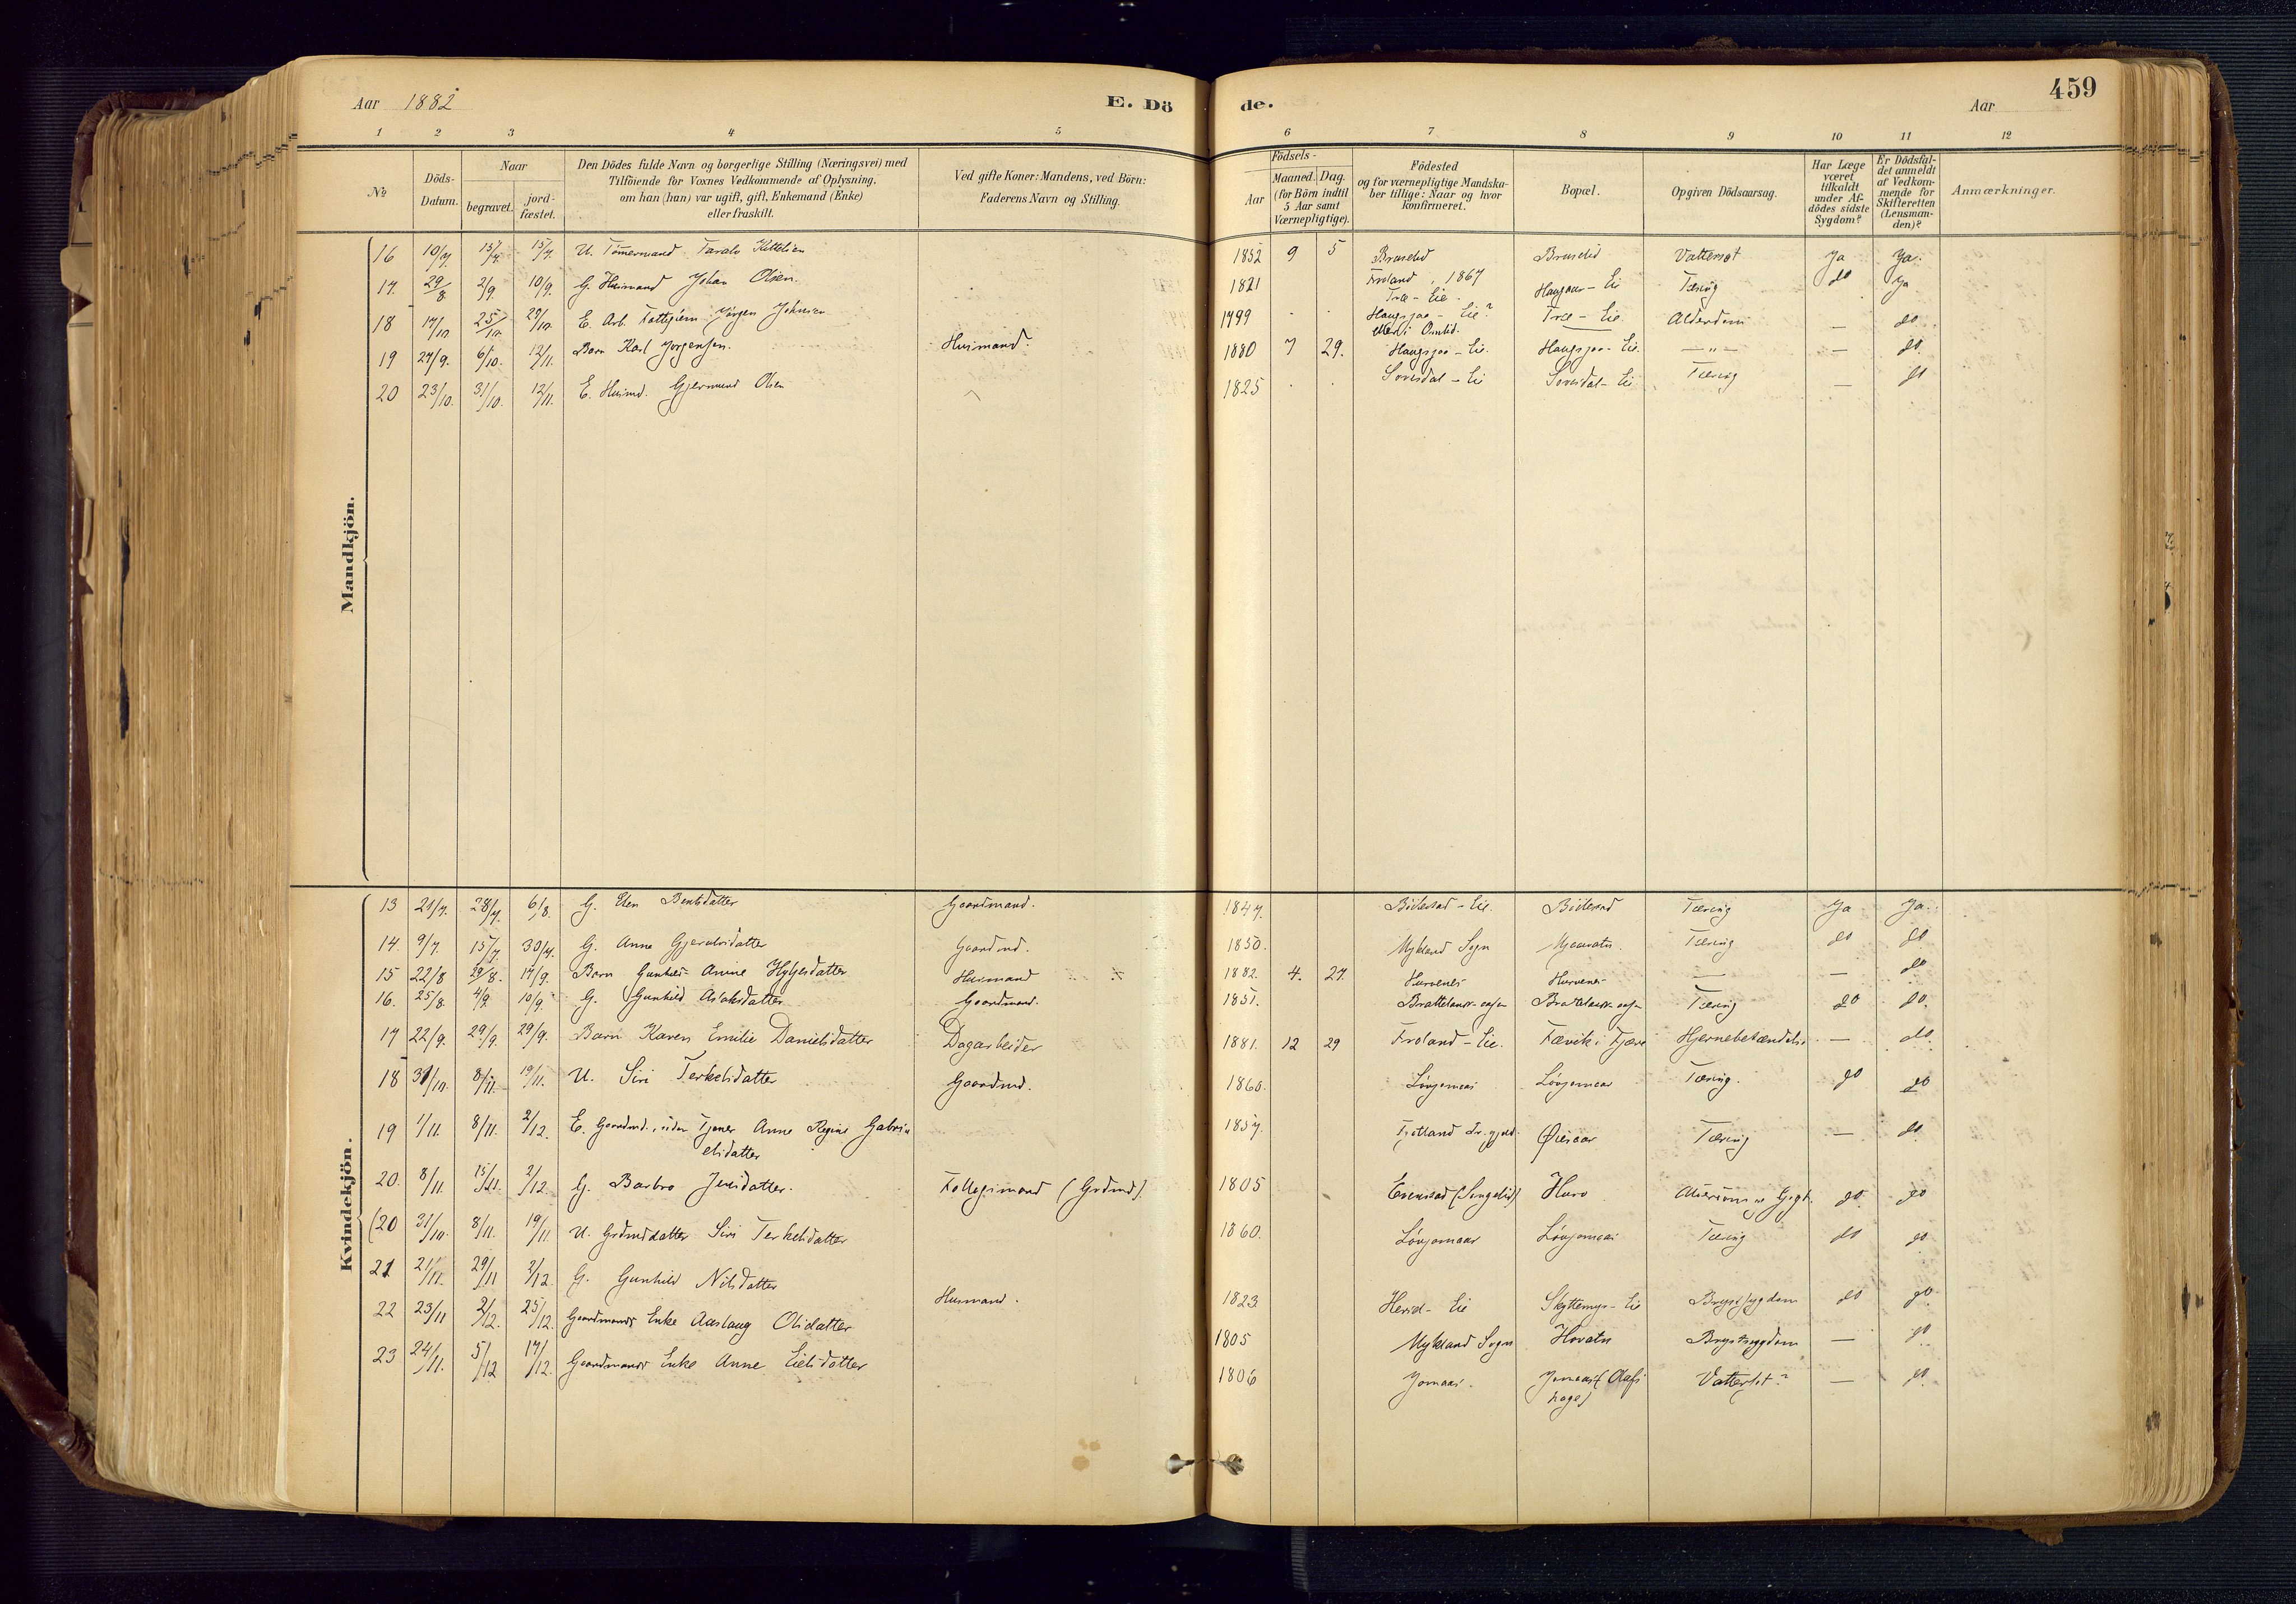 Aar 1882
E. Dö
de.
Aar
459
1 2 3 4 5 6 7 8 9 10 11 12
No
Döds-
Datum.
Naar
begravet.
jord-
fæstet.
Den Dödes fulde Navn og borgerlige Stilling (Næringsvei) med
Tilföiende for Voxnes Vedkommende af Oplysning,
om han (hun) var ugift, gift, Enkemand (Enke)
eller fraskilt.
Ved gifte Koner: Mandens, ved Börn:
Faderens Navn og Stilling.
Födsels-
Aar
Maaned. Dag.
(for Börn indtil
5 Aar samt
Værnepligtige).
Födested
og for værnepligtige Mandska-
ber tillige: Naar og hvor
konfirmeret.
Bopæl.
Opgiven Dödsaarsag.
Har Læge
været
tilkaldt
under Af-
dödes sidste
Sygdom?
Er Dödsfal-
det anmeldt
af Vedkom-
mende for
Skifteretten
(Lensman-
den)?
Anmærkninger.
Mandkjön.
16 10/7 15/7. 15/7. U. Tömermand Taralv Kittelsen 1852 9 5 Bruselid Bruselid Vattersot Ja Ja.
Froland, 1867
17. 29/8 2/9. 10/9. G. Huusmand Johan Olsen. 1821 Træ-Eie Haugaas-Eie Tæring do Ja
18 17/10. 25/10. 29/10. E. Arb. Fattiglem Jörgen Johnsen 1799 Haugsjaa-Eie? Træ-Eie. Alderdom — do.
19 27/9. 6/10. 12/11. Barn Karl Jörgensen. Husmand. 1880 7 29. Haugsjaa-Eie. Haugsjaa-Eie. —"— — do.
20 23/10. 31/10. 12/11. E. Husmd. Gjermund Olsen 1825 Sovesdal-Eie Sovesdal-Eie Tæring — do
Kvindekjön.
13 21/7. 28/7. 6/8. G. Elen Bentsdatter Gaardmand. 1847. Bidestad-Eie. Bidestad Tæring Ja Ja.
14. 9/7. 15/7. 30/7. G. Anne Gjerulvsdatter Gaardmd. 1850. Mykland Sogn Mjaavatn. Tæring do do.
15 22/8 29/8. 17/9. Barn Gunhild Anine Helgesdatter Husmand 1882. 4. 27. Hurvenes Hurvenes — — do.
16. 25/8. 4/9. 10/9. G. Gunhild Aslaksdatter Gaardmand. 1851. Tæring do do.
17 22/9. 29/9. 29/9. Barn Karen Emilie Danielsdatter Dagarbeider 1881. 12 29 Froland-Eie. Fævik i Fjære Hjernebetændelse — do.
18 31/10. 8/11. 19/11. U. Siri Terkelsdatter Gaardmd. 1860. Lövjomaas Lövjomaas Tæring. do do
19 1/11. 8/11. 2/12. E. Gaardmd., siden Tjener Anne Regine Gabri-
elsdatter 1857. Öiesaas Tæring — do.
20. 8/11. 15/11. 2/12. G. Barbro Jensdatter. Follogsmand (Grdmd). 1805 Evenstad (Songelid) Hurv do. do
(20 31/10. 8/11. 19/11 U. Grdmdsdatter Siri Terkelsdatter 1860. Lövjomaas Lövjomaas Tæring do do
21 21/11. 29/11 2/12. G. Gunhild Nilsdatter Husmand. 1823 Heresd-Eie Skyttemyr-Eie Brystsygdom do do
22 23/11 2/12. 25/12. Gaardmands Enke Aaslaug Olsdatter 1805 Mykland Sogn Hovatn Brystsygdom — do
23 24/11. 5/12 17/12. Gaardmands Enke Anne Eielsdatter 1806 Jomaas. Jomaas Vattersot? — do.